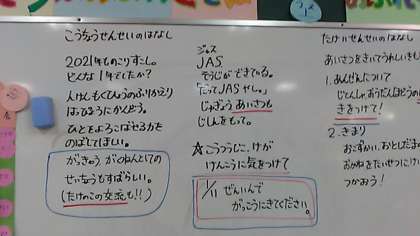 こうちょうせんせいのはなし
2021年ものこりすこし。
どんな1年でしたか?
人けんもくひょうのふりかえり
はっぴょうにかんどう。
ひとをよろこばせる力を
のばしてほしい。
がっきゅう がくねんとしての
せいちょうもすばらしい。
(たけのこの交流も!!)
ジャス
JAS
そうじができてる。
「だってJASやし。」
じゅぎょう あいさつも
じしんをもって。
☆こうつうじこ、けが
けんこうに気をつけて
1/11 ぜんいんで
がっこうにきてください。
たけいせんせいのはなし
あいさつをきいてうれしいきも
1. あんぜんについて
じてんしゃ おうだんほどうの
きをつけて!
2. きまり
おこずかい、おとしだま
おかねをたいせつに
つかおう!